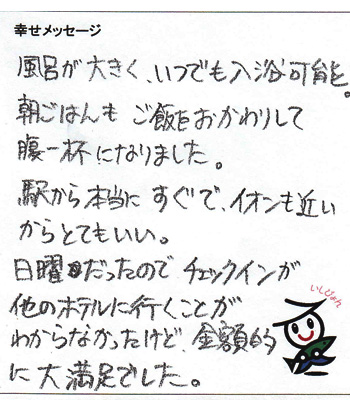 幸せメッセージ
風呂が大きく、いつでも入浴可能と。
朝ごはんも ご飯をおかわりして
腹一杯になりました。
駅から本当に すぐで、イオンも近い
からとてもいい。
日曜だったので チェックインが
他のホテルに行くことが
わからなかったけど、金額的
に大満足でした。
いしぴょん